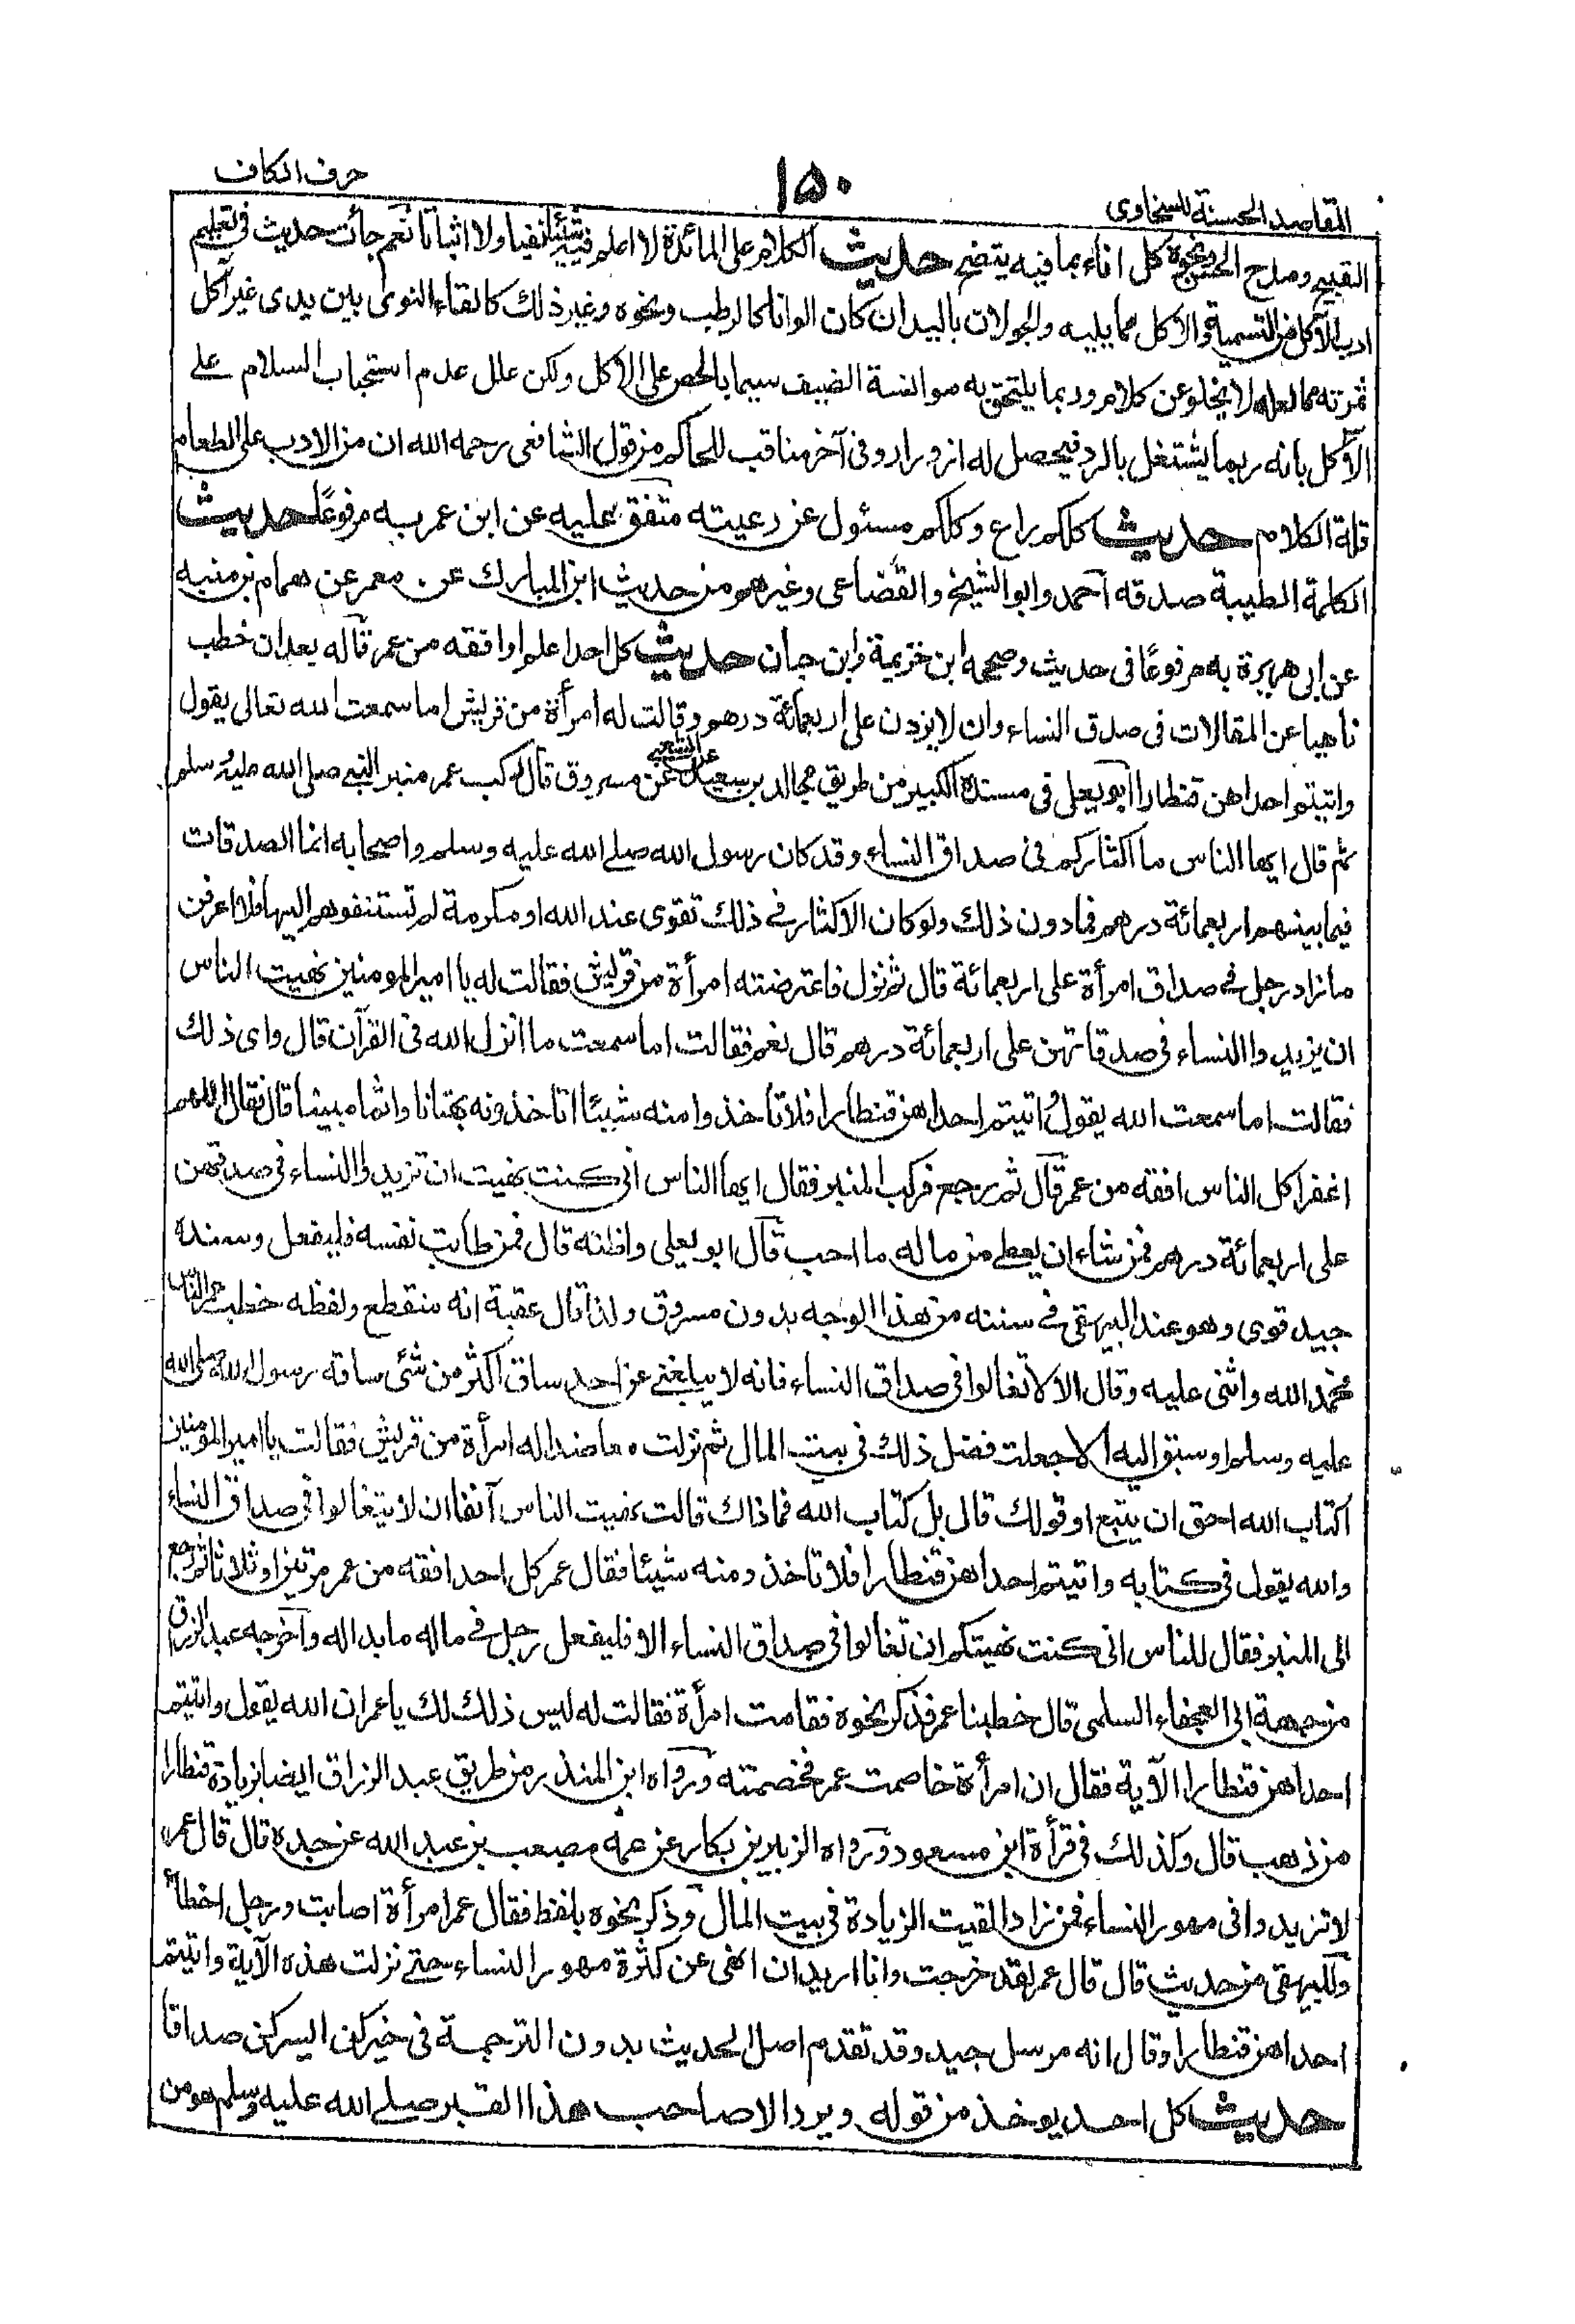 المقاصد الحسنة للسخاوى
١٥٠
حرف الكاف
القبيح ومدح الحسن ونحوه كل اناء بما فيه ينضح حديث الكلام على المائدة لا اعلم فيه شيئا نفيا ولا اثباتا نعم جائت حديث فى تعليم
ادب الاكل من التسمية والاكل مما يليه والجولان باليد ان كان الوانا كالرطب ونحوه وغير ذلك كالقاء النوى بين يدى غير اكل
ثمرته مما لعله لا يخلو عن كلام وربما يلتحق به موانسة الضيف سيما بالحصر على الاكل ولكن علل عدم استحباب السلام على
الآكل بانه ربما يشتغل بالرد فيحصل له ازورار وفى آخر مناقب للحاكم من قول الشافعى رحمه الله ان من الادب على الطعام
قلة الكلام حديث كلكم راع وكلكم مسئول عن رعيته متفق عليه عن ابن عمر به مرفوعا حديث
الكلمة الطيبة صدقه احمد وابو الشيخ والقضاعى وغيرهم من حديث ابن المبارك عن معمر عن همام بن منبه
عن ابى هريرة به مرفوعًا فى حديث وصححه ابن خزيمة وابن حبان حديث كل احد اعلم او افقه من عمر قاله بعد ان خطب
ناهيا عن المقالات فى صدق النساء وان لا يزدن على اربعمائة درهم وقالت له امرأة من قريش اما سمعت الله تعالى يقول
واتيتم احداهن قنطارا ابو يعلى فى مسنده الكبير من طريق مجالد بن سعيد عن الشعبى عن مسروق قال ركب عمر منبر النبى صلى الله عليه وسلم
ثم قال ايها الناس ما اكثاركم فى صداق النساء وقد كان رسول الله صلے الله عليه وسلم واصحابه انما الصدقات
فيما بينهم اربعمائة درهم فما دون ذلك ولو كان الاكثار فى ذلك تقوى عند الله او مكرمة لم تستنفوهم اليها فلا اعرفن
ما زاد رجل فى صداق امرأة على اربعمائة قال ثم نزل فاعترضته امرأة من قريش فقالت له يا امير المومنين نهيت الناس
ان يزيدوا النساء فى صدقاتهن على اربعمائة درهم قال نعم فقالت اما سمعت ما انزل الله فى القرآن قال واى ذلك
فقالت اما سمعت الله يقول اتيتم احداهن قنطارا فلا تاخذوا منه شيئا اتاخذونه بهتانا واثما مبينا قال فقال اللهم
اغفر اكل الناس افقه من عمر قال ثم رجع فركب المنبر فقال ايها الناس انى كنت نهيت ان تزيدوا النساء فى صدقهن
على اربعمائة درهم فمن شاء ان يعطى من ماله ما احب قال ابو يعلى واظنه قال فمن طابت نفسه فليفعل وسنده
جيد قوى وهو عند البيهقى فى سننه من هذا الوجه بدون مسروق ولذا قال عقبة انه منقطع ولفظه خطب عمر الناس
فحمد الله واثنى عليه وقال الا لا تغالوا فى صداق النساء فانه لا يبلغنى عن احد ساق اكثر من شئ ساقه رسول الله صلى الله
عليه وسلم او سبق اليه الا جعلت فضل ذلك فى بيت المال ثم نزلت معاضدا له امرأة من قريش فقالت يا امير المومنين
اكتاب الله احق ان يتبع او قولك قال بل كتاب الله فما ذاك قالت نهيت الناس آنفا ان لا يتغالوا فى صداق النساء
والله يقول فى كتابه واتيتم احداهن قنطارا فلا تاخذ ومنه شيئا فقال عمر كل احد افقه من عمر مرتين او ثلاثا ثم رجع
الى المنبر فقال للناس انى كنت نهيتكم ان تغالوا فى صداق النساء الا فليفعل رجل فى ماله ما بدا له واخرجه عبد الرزاق
من جهة ابى العجفاء السلمى قال خطبنا عمر فذكر نحوه فقامت امرأة فقالت له ليس ذلك لك يا عمر ان الله يقول واتيتم
احداهن قنطارا الآية فقال ان امرأة خاصمت عمر فخصمته ورواه ابن المنذر من طريق عبد الرزاق ايضا بزيادة قنطارا
من ذهب قال وكذلك فى قرأة ابن مسعود ورواه الزبير بن بكار عن عمه مصعب بن عبد الله عن جده قال قال عمر
لا تزيدوا فى مهور النساء فمن زاد القيت الزيادة فى بيت المال وذكر نحوه بلفظ فقال عمر امرأة اصابت ورجل اخطأ
وللبيهقى من حديث قال قال عمر لقد خرجت وانا اريد ان انهى عن كثرة مهور النساء حتے نزلت هذه الآية واتيتم
احداهن قنطارا وقال انه مرسل جيد وقد تقدم اصل الحديث بدون الترجمة فى خيركن ايسركن صداقا
حديث كل احد يوخذ من قوله ويرد الا صاحب هذا القبر صلے الله عليه وسلم هو من